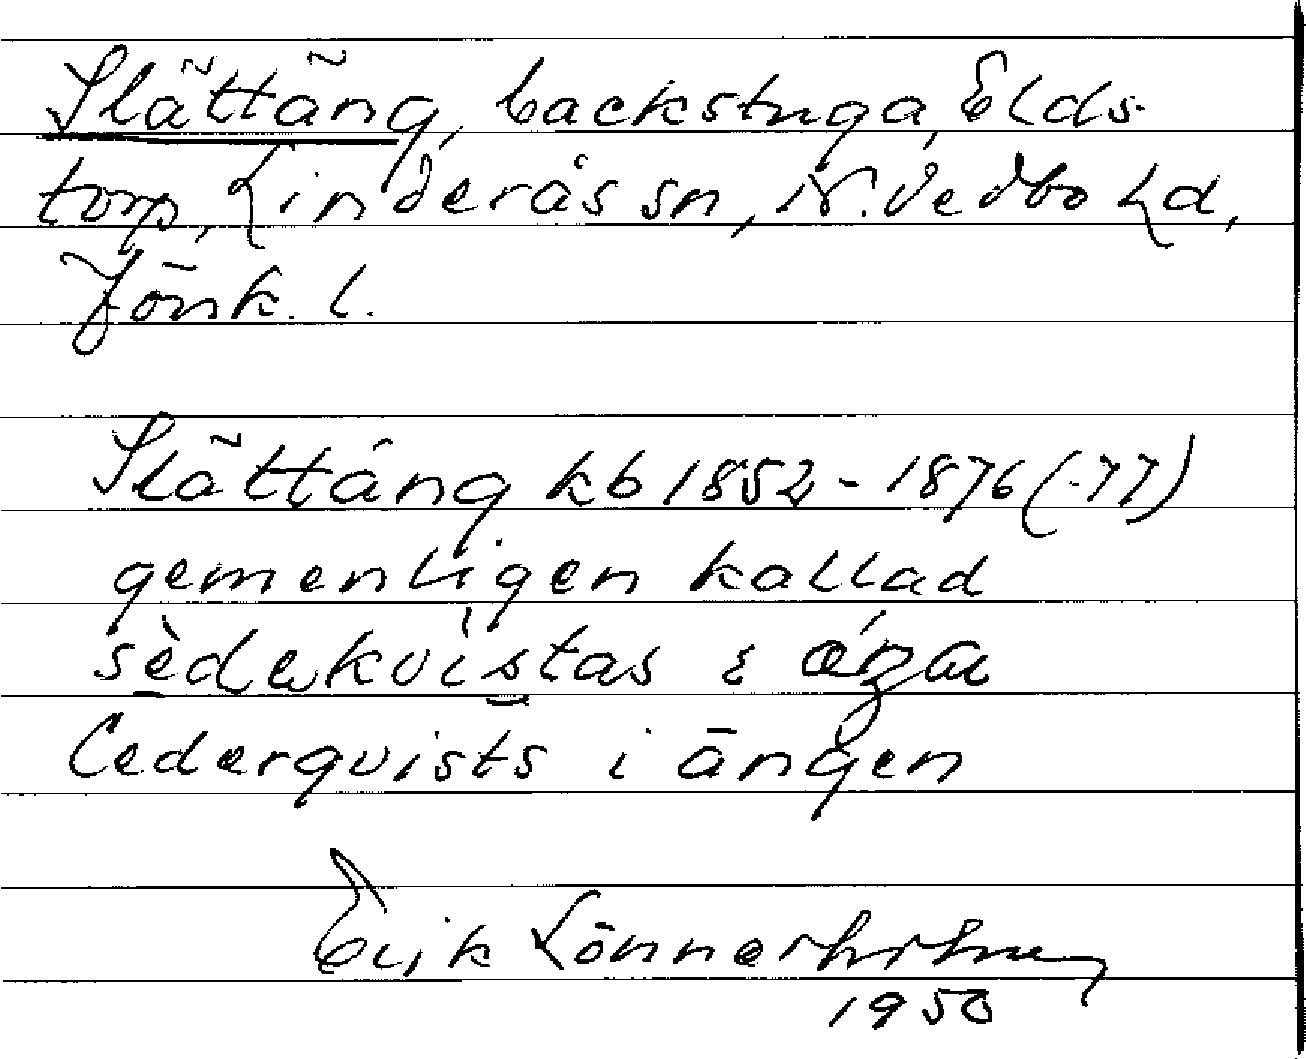 Slättäng, backstuga, Elds-
torp, Linderås sn, N. Vedbo hd,
Jönk. l.
Slättäng kb 1852-1876 (-77)
gemenligen kallad
sèdekvìstas i
Cederqvists i ängen
Erik Lönnerholm
1950